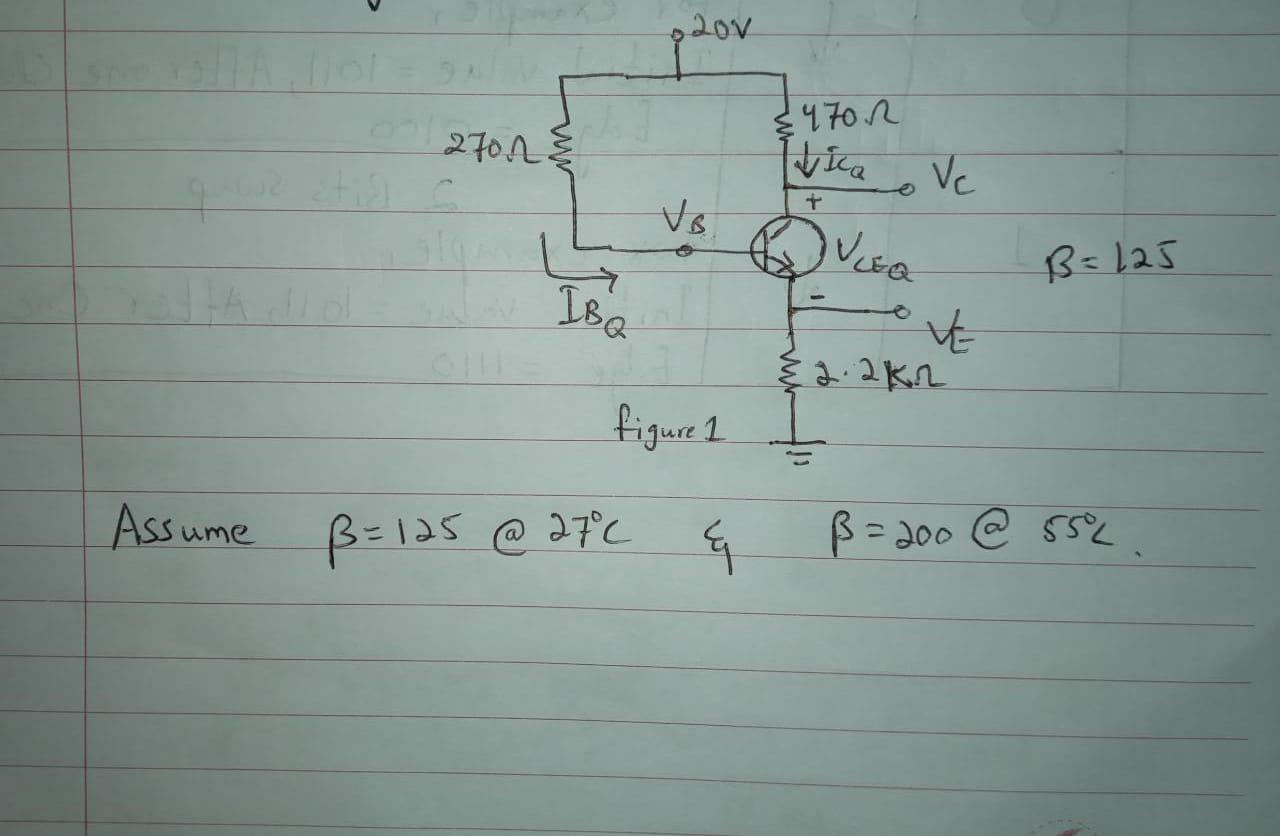 20V
470Ω
270Ω
↓ICQ
VC
+
VB
VCEQ
β=125
IBQ
-
VE
2.2KΩ
figure 1
Assume β=125 @ 27°C & β=200 @ 55°C.